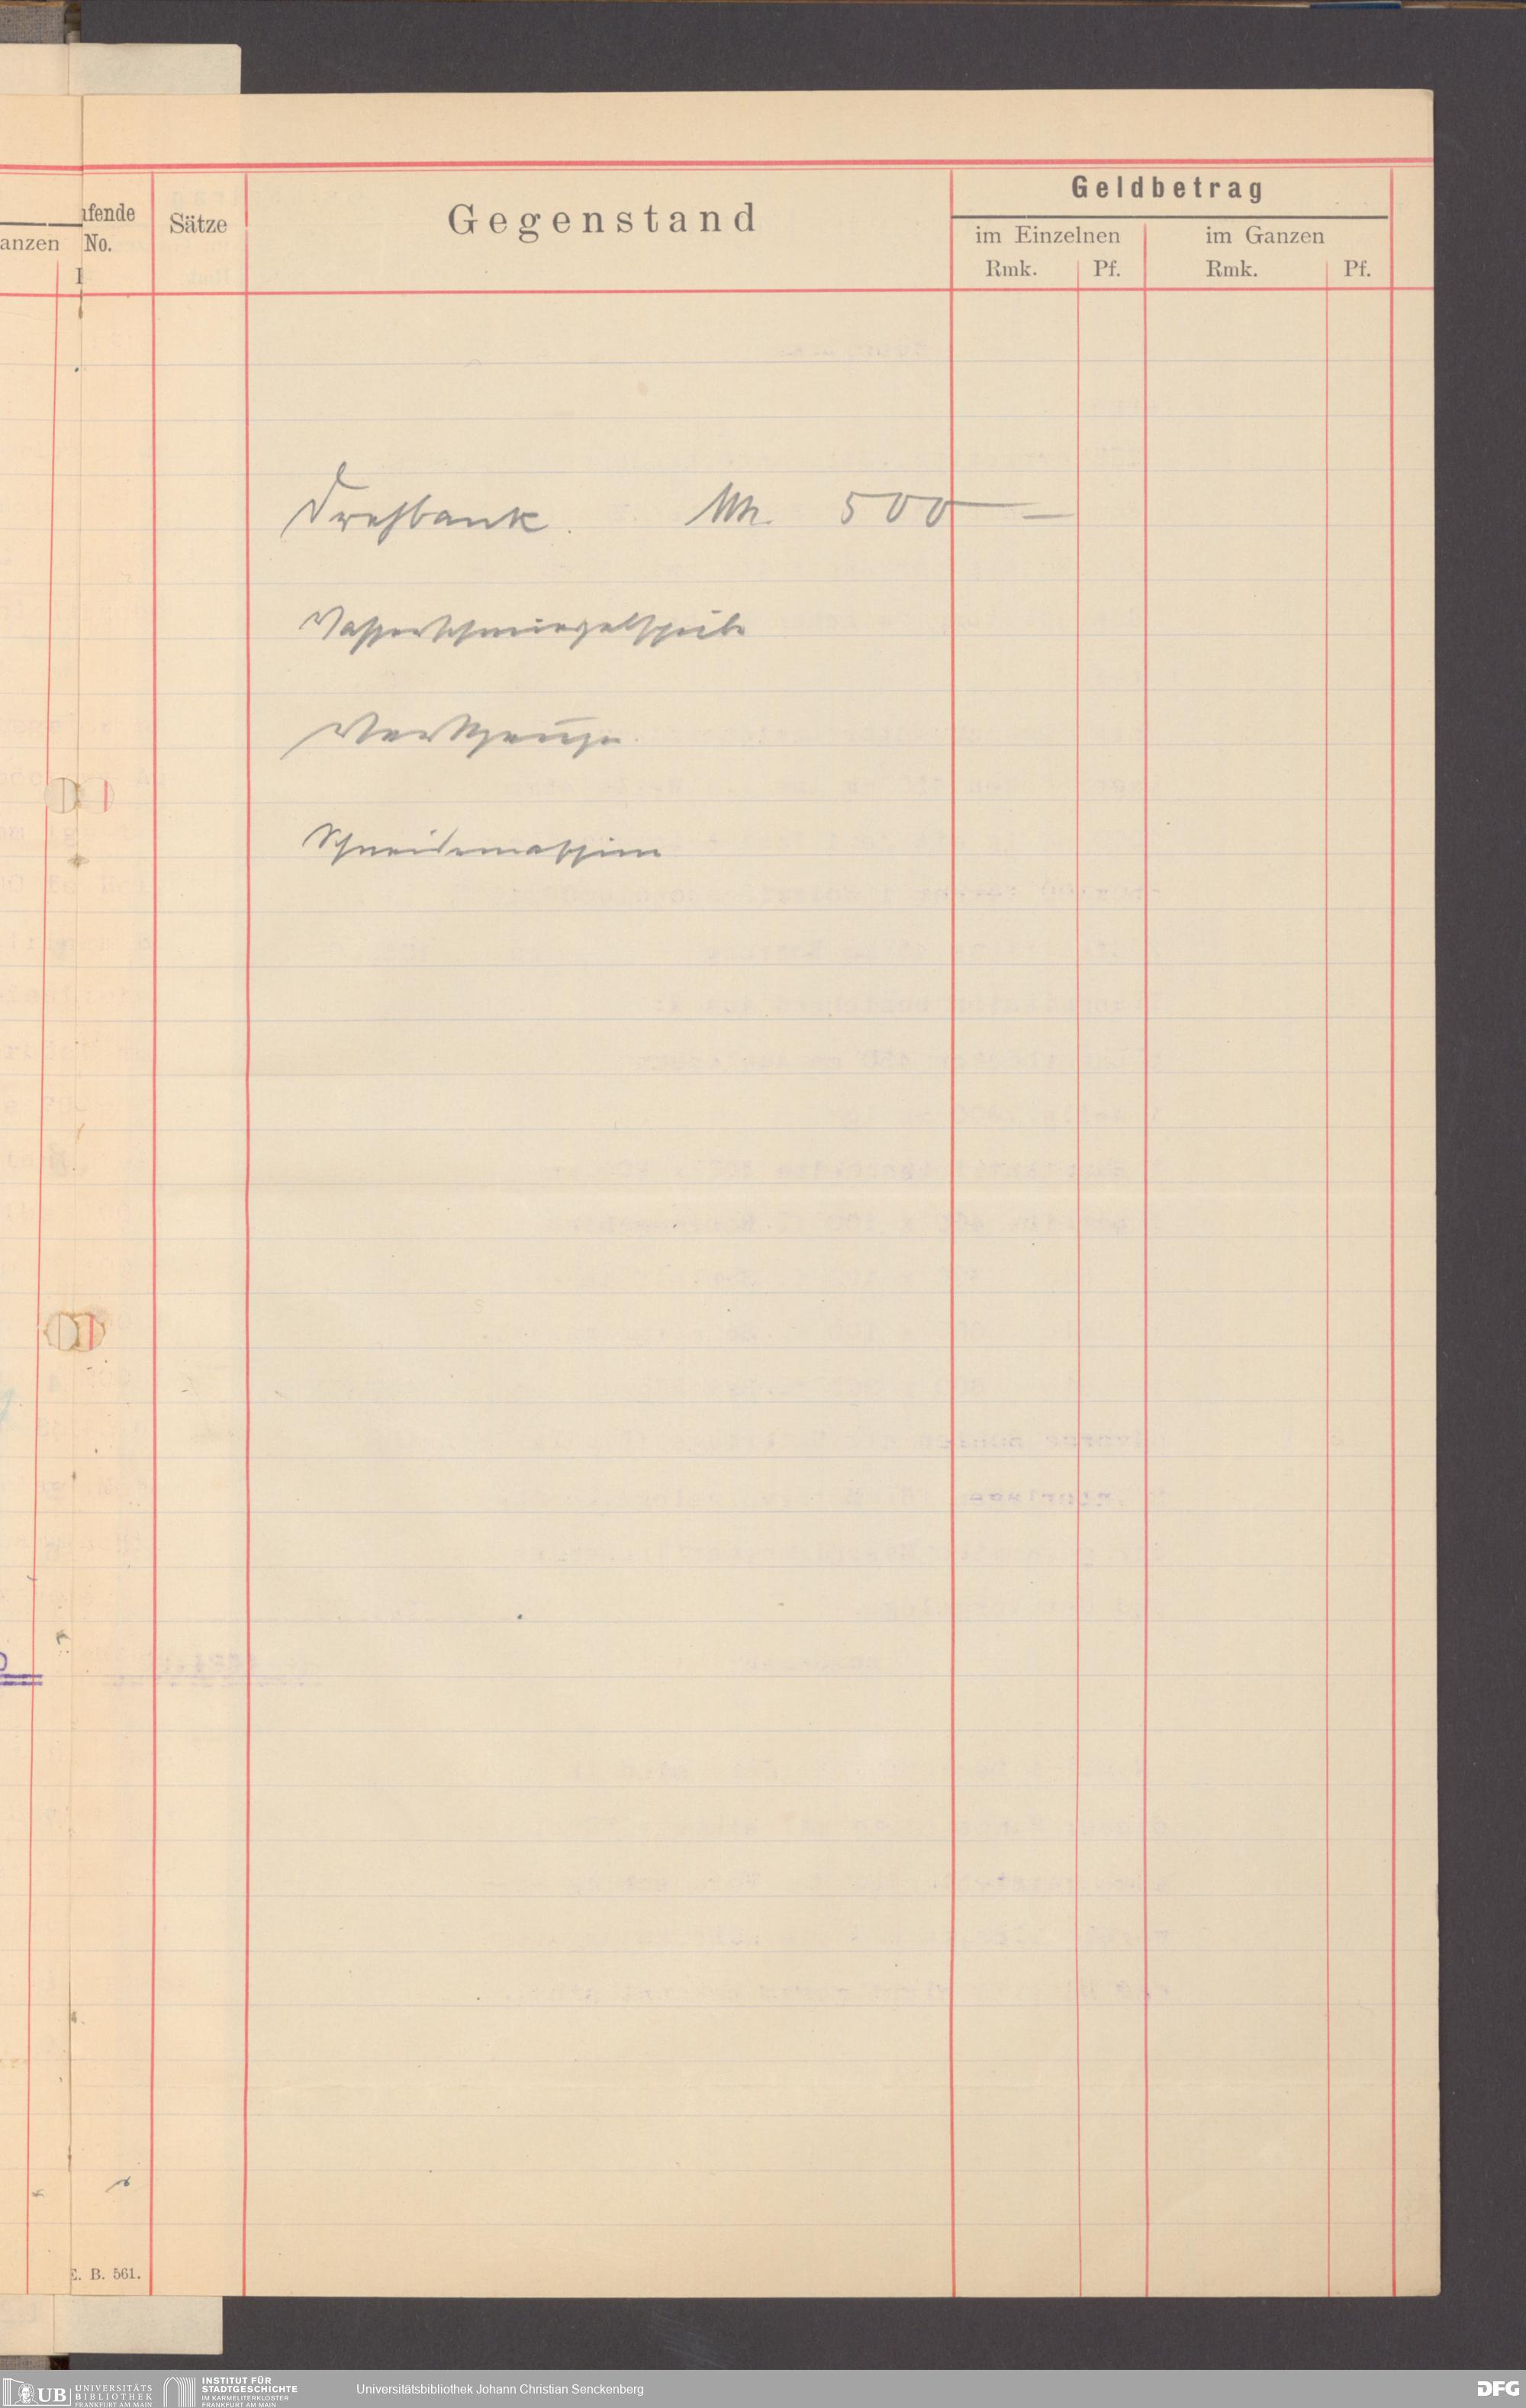 Geldbetrag
anzen
ufende
No.
Sätze
Gegenstand
im Einzelnen
im Ganzen
Rmk.
Pf.
Rmk.
Pf.
Drehbank. Mk. 500 —
Wasserschmirgelscheibe
Werkzeuge.
Schneidemaschine
E. B. 561.
UB UNIVERSITÄTS
BIBLIOTHEK
FRANKFURT AM MAIN
INSTITUT FÜR
STADTGESCHICHTE
IM KARMELITERKLOSTER
FRANKFURT AM MAIN
Universitätsbibliothek Johann Christian Senckenberg
DFG